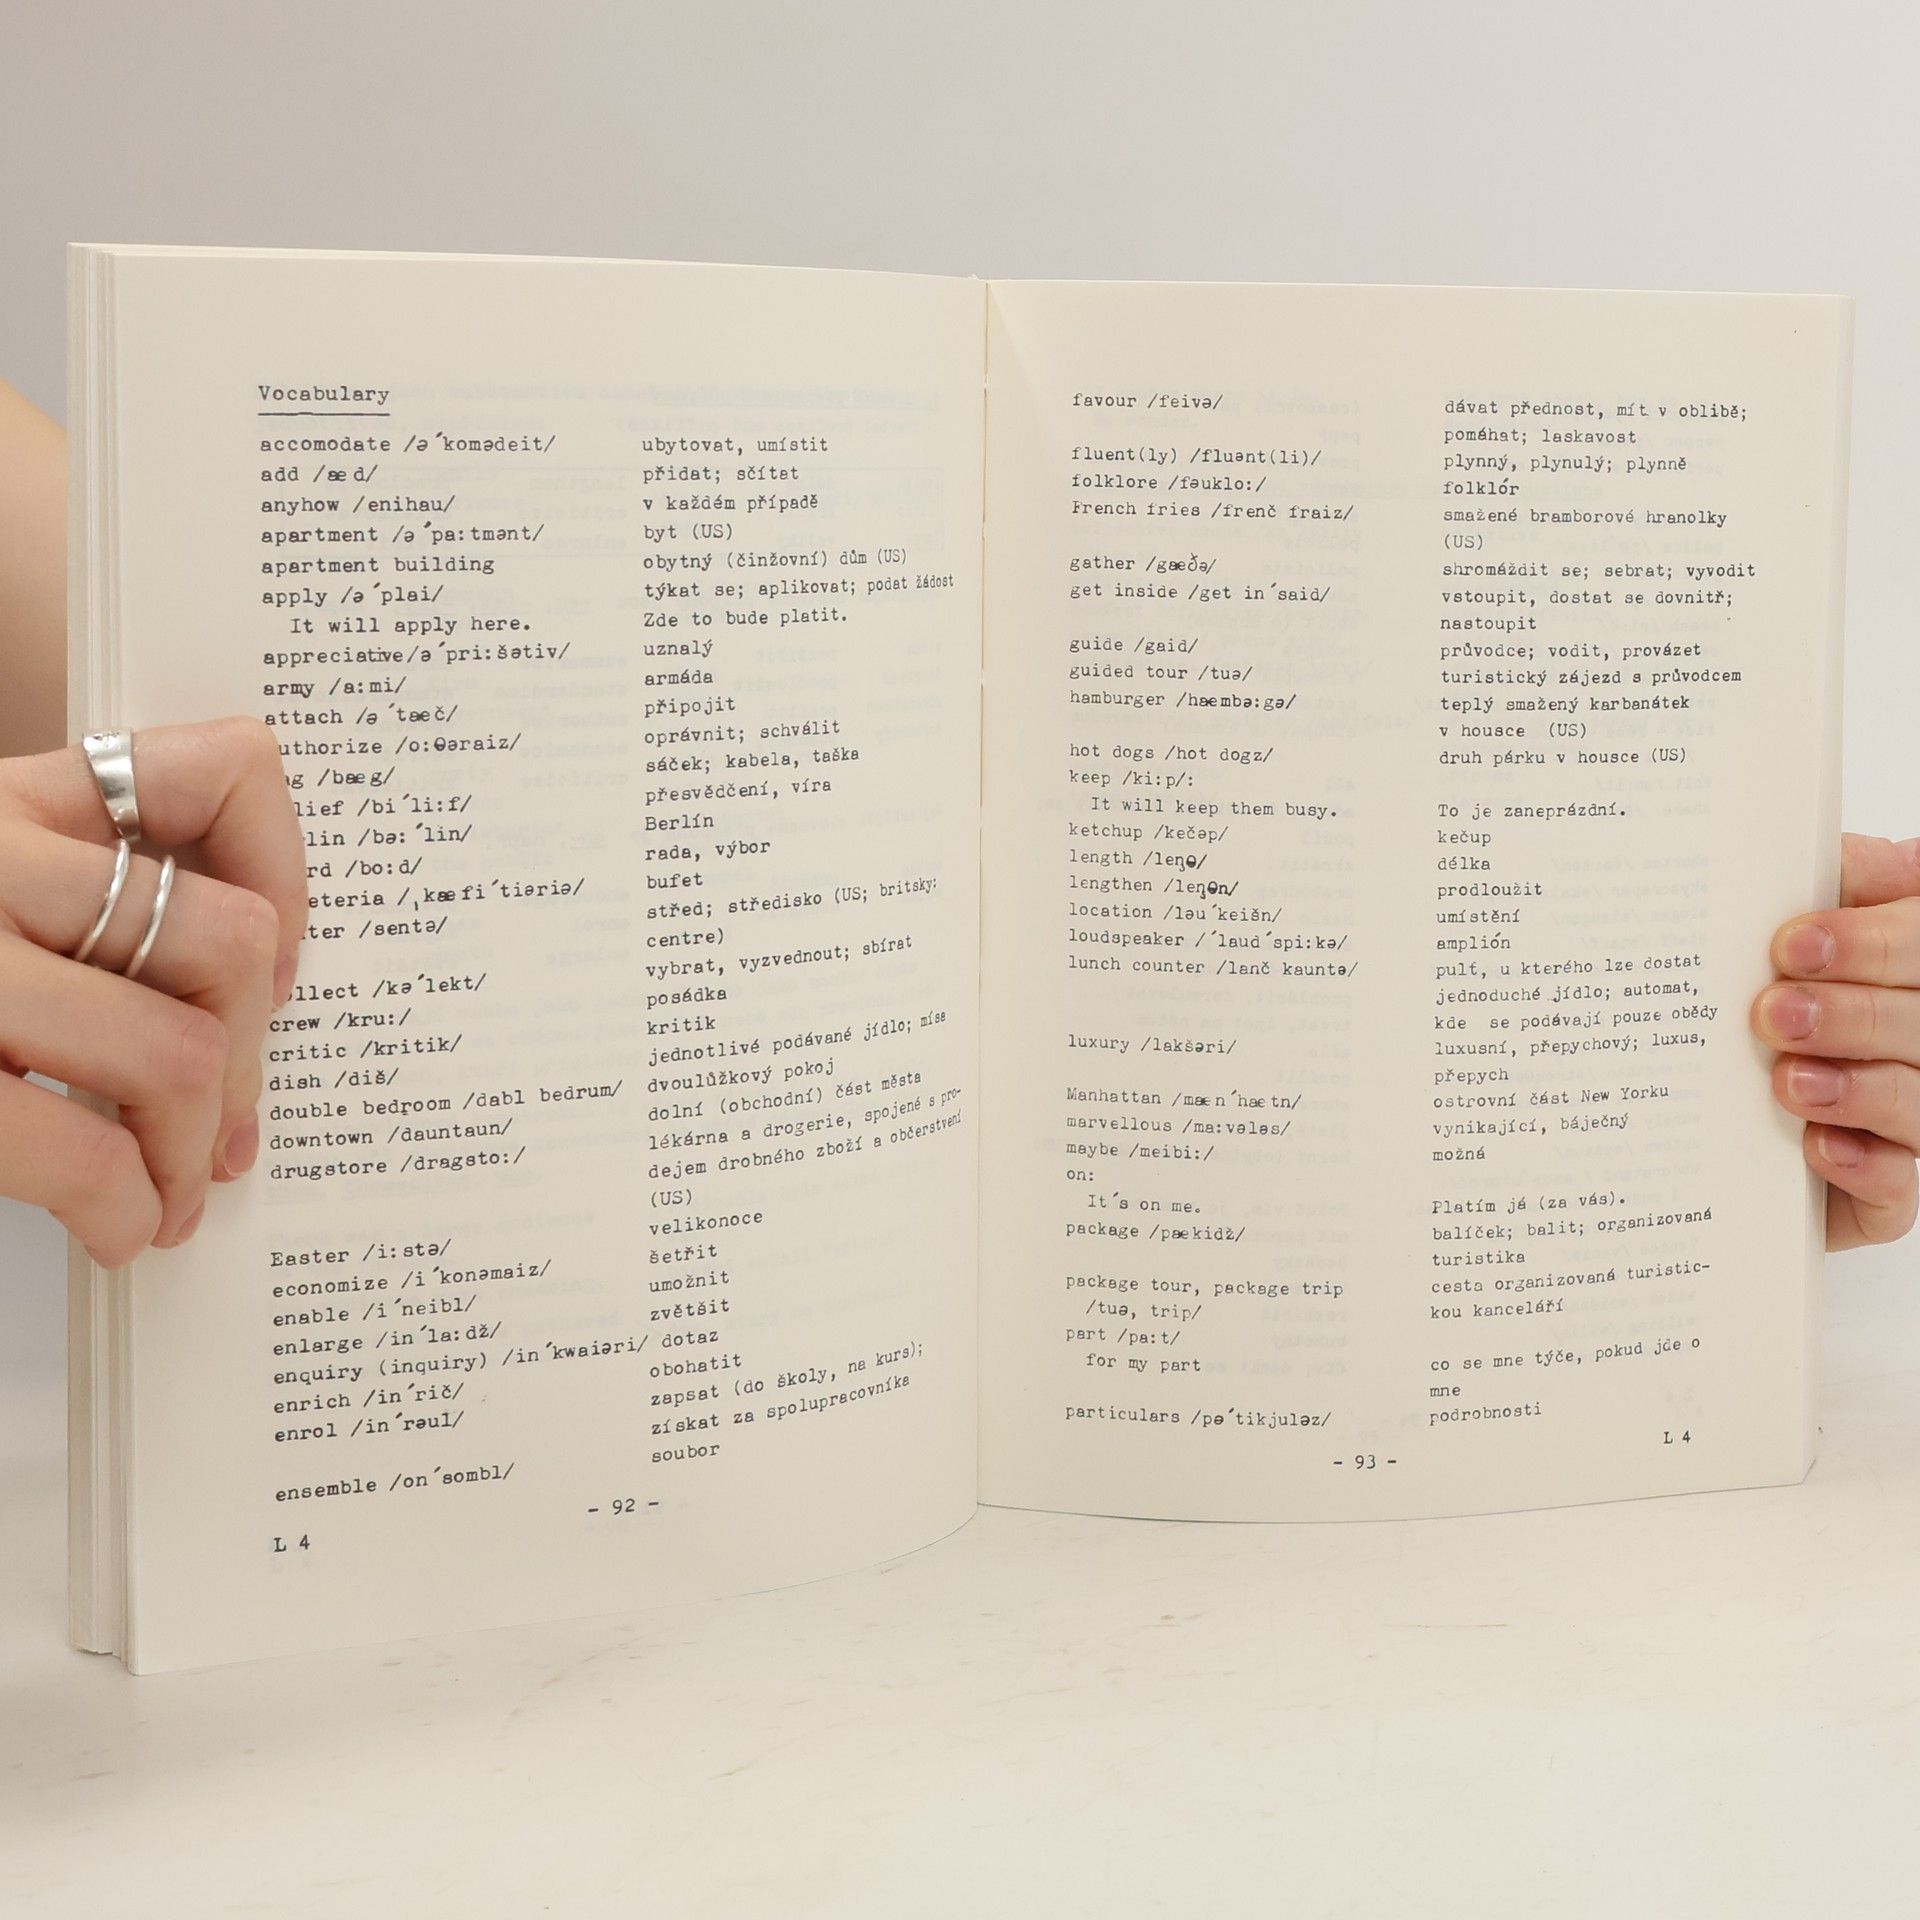 Vocabulary
accomodate /ə´komədeit/ ubytovat, umístit
add /æd/ přidat; sčítat
anyhow /enihau/ v každém případě
apartment /ə´pa:tmənt/ byt (US)
apartment building obytný (činžovní) dům (US)
apply /ə´plai/ týkat se; aplikovat; podat žádost
It will apply here. Zde to bude platit.
appreciative/ə´pri:šətiv/ uznalý
army /a:mi/ armáda
attach /ə´tæč/ připojit
uthorize /o:θəraiz/ oprávnit; schválit
ag /bæg/ sáček; kabela, taška
lief /bi´li:f/ přesvědčení, víra
lin /bə:´lin/ Berlín
rd /bo:d/ rada, výbor
eteria /ˌkæfi´tiəriə/ bufet
ter /sentə/ střed; středisko (US; britsky:
centre)
llect /kə´lekt/ vybrat, vyzvednout; sbírat
crew /kru:/ posádka
critic /kritik/ kritik
dish /diš/ jednotlivé podávané jídlo; mísa
double bedroom /dabl bedrum/ dvoulůžkový pokoj
downtown /dauntaun/ dolní (obchodní) část města
drugstore /dragsto:/ lékárna a drogerie, spojené s pro-
dejem drobného zboží a občerstvení
(US)
Easter /i:stə/ velikonoce
economize /i´konəmaiz/ šetřit
enable /i´neibl/ umožnit
enlarge /in´la:dž/ zvětšit
enquiry (inquiry) /in´kwaiəri/ dotaz
enrich /in´rič/ obohatit
enrol /in´rəul/ zapsat (do školy, na kurs);
získat za spolupracovníka
ensemble /on´sombl/ soubor
- 92 -
L 4
favour /feivə/ dávat přednost, mít v oblibě;
pomáhat; laskavost
fluent(ly) /fluənt(li)/ plynný, plynulý; plynně
folklore /fəuklo:/ folklór
French fries /frenč fraiz/ smažené bramborové hranolky
(US)
gather /gæðə/ shromáždit se; sebrat; vyvodit
get inside /get in´said/ vstoupit, dostat se dovnitř;
nastoupit
guide /gaid/ průvodce; vodit, provázet
guided tour /tuə/ turistický zájezd s průvodcem
hamburger /hæmbə:gə/ teplý smažený karbanátek
v housce (US)
hot dogs /hot dogz/ druh párku v housce (US)
keep /ki:p/:
It will keep them busy. To je zaneprázdní.
ketchup /kečəp/ kečup
length /leŋθ/ délka
lengthen /leŋθn/ prodloužit
location /ləu´keišn/ umístění
loudspeaker /´laud´spi:kə/ amplión
lunch counter /lanč kauntə/ pult, u kterého lze dostat
jednoduché jídlo; automat,
kde se podávají pouze obědy
luxury /lakšəri/ luxusní, přepychový; luxus,
přepych
Manhattan /mæn´hætn/ ostrovní část New Yorku
marvellous /ma:vələs/ vynikající, báječný
maybe /meibi:/ možná
on:
It´s on me. Platím já (za vás).
package /pækidž/ balíček; balit; organizovaná
turistika
package tour, package trip cesta organizovaná turistic-
/tuə, trip/ kou kanceláří
part /pa:t/
for my part co se mne týče, pokud jde o
mne
particulars /pə´tikjuləz/ podrobnosti
L 4
- 93 -